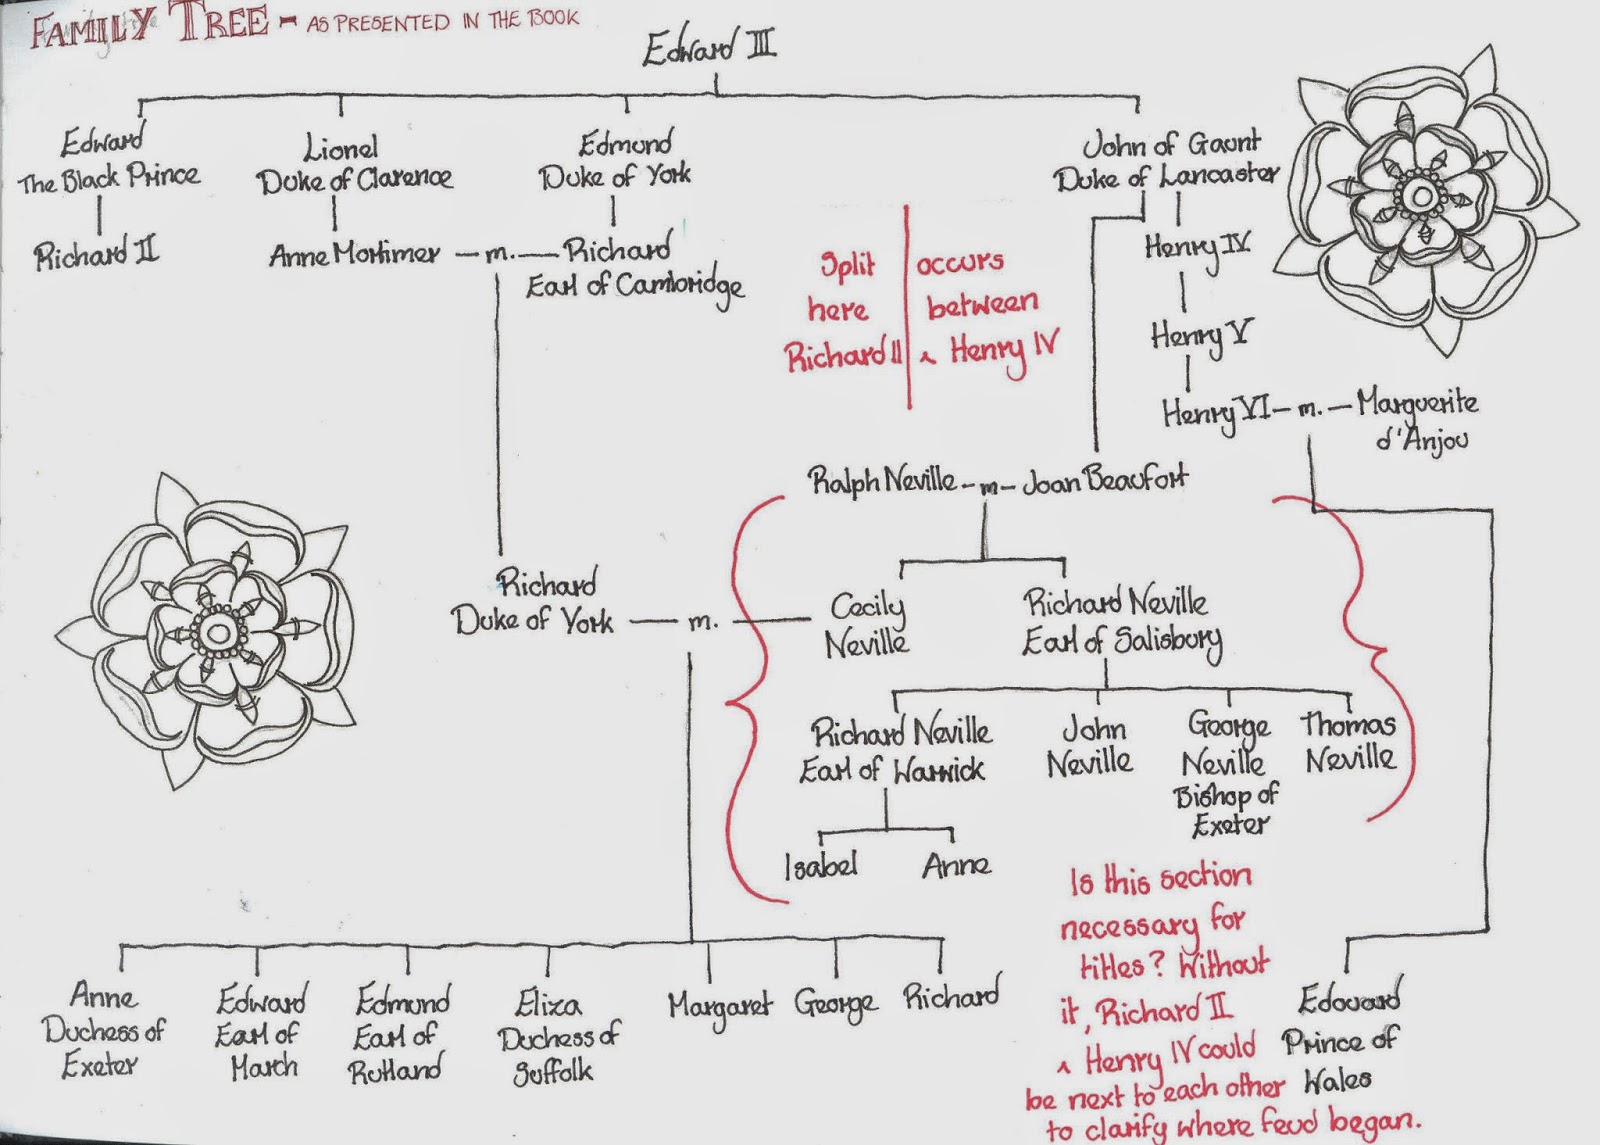 FAMILY TREE - AS PRESENTED IN THE BOOK
Edward III
Edward
The Black Prince
Lionel
Duke of Clarence
Edmund
Duke of York
John of Gaunt
Duke of Lancaster
Richard II
Anne Mortimer - m. - Richard
Earl of Cambridge
Henry IV
Split occurs
here between
Richard II & Henry IV
Henry V
Henry VI - m. - Marguerite
d'Anjou
Ralph Neville - m - Joan Beaufort
Richard
Duke of York - m. - Cecily
Neville
Richard Neville
Earl of Salisbury
Richard Neville
Earl of Warwick
John
Neville
George
Neville
Bishop of
Exeter
Thomas
Neville
Isabel
Anne
Is this section
necessary for
titles? Without
it, Richard II
& Henry IV could
be next to each other
to clarify where feud began.
Anne
Duchess of
Exeter
Edward
Earl of
March
Edmund
Earl of
Rutland
Eliza
Duchess of
Suffolk
Margaret
George
Richard
Edouard
Prince of
Wales